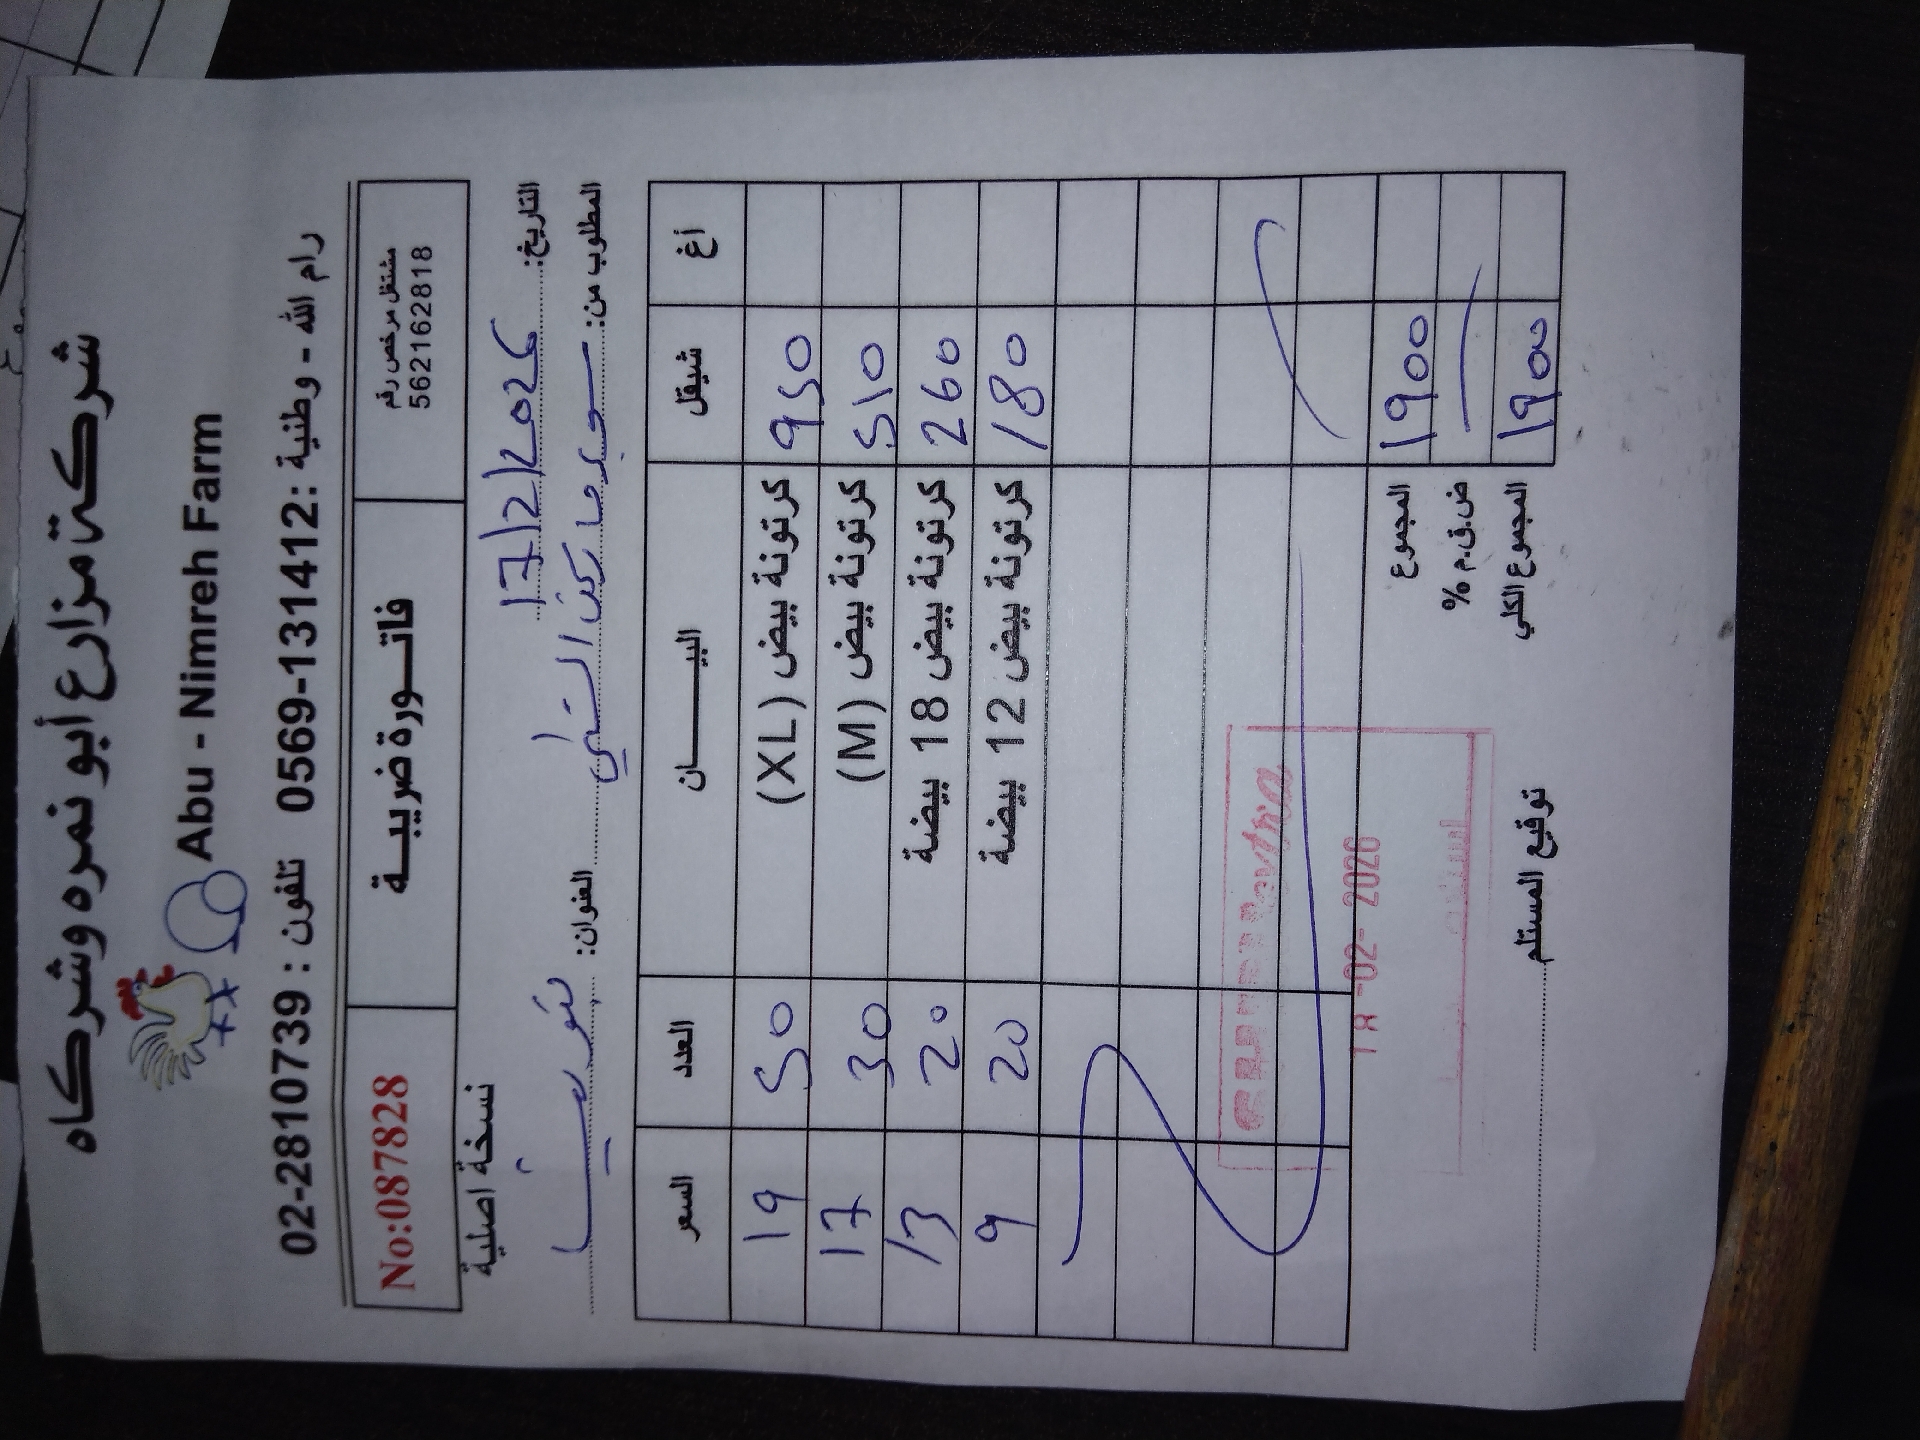 شركة مزارع أبو نمره وشركاه
Abu - Nimreh Farm
رام الله - وطنية : 0569-131412 تلفون : 02-2810739
مشتغل مرخص رقم
562162818
فاتـــورة ضريبـــة
No:087828
نسخة اصلية
التاريخ: 17/2/2026
المطلوب من: سوبر ماركت
العنوان:
أغ شيقل البيـــــــان العدد السعر
950 كرتونة بيض (XL) 50 19
510 كرتونة بيض (M) 30 17
260 كرتونة بيض 18 بيضة 20 13
180 كرتونة بيض 12 بيضة 20 9
1900 المجموع
ض.ق.م %
1900 المجموع الكلي
18 -02- 2026
توقيع المستلم